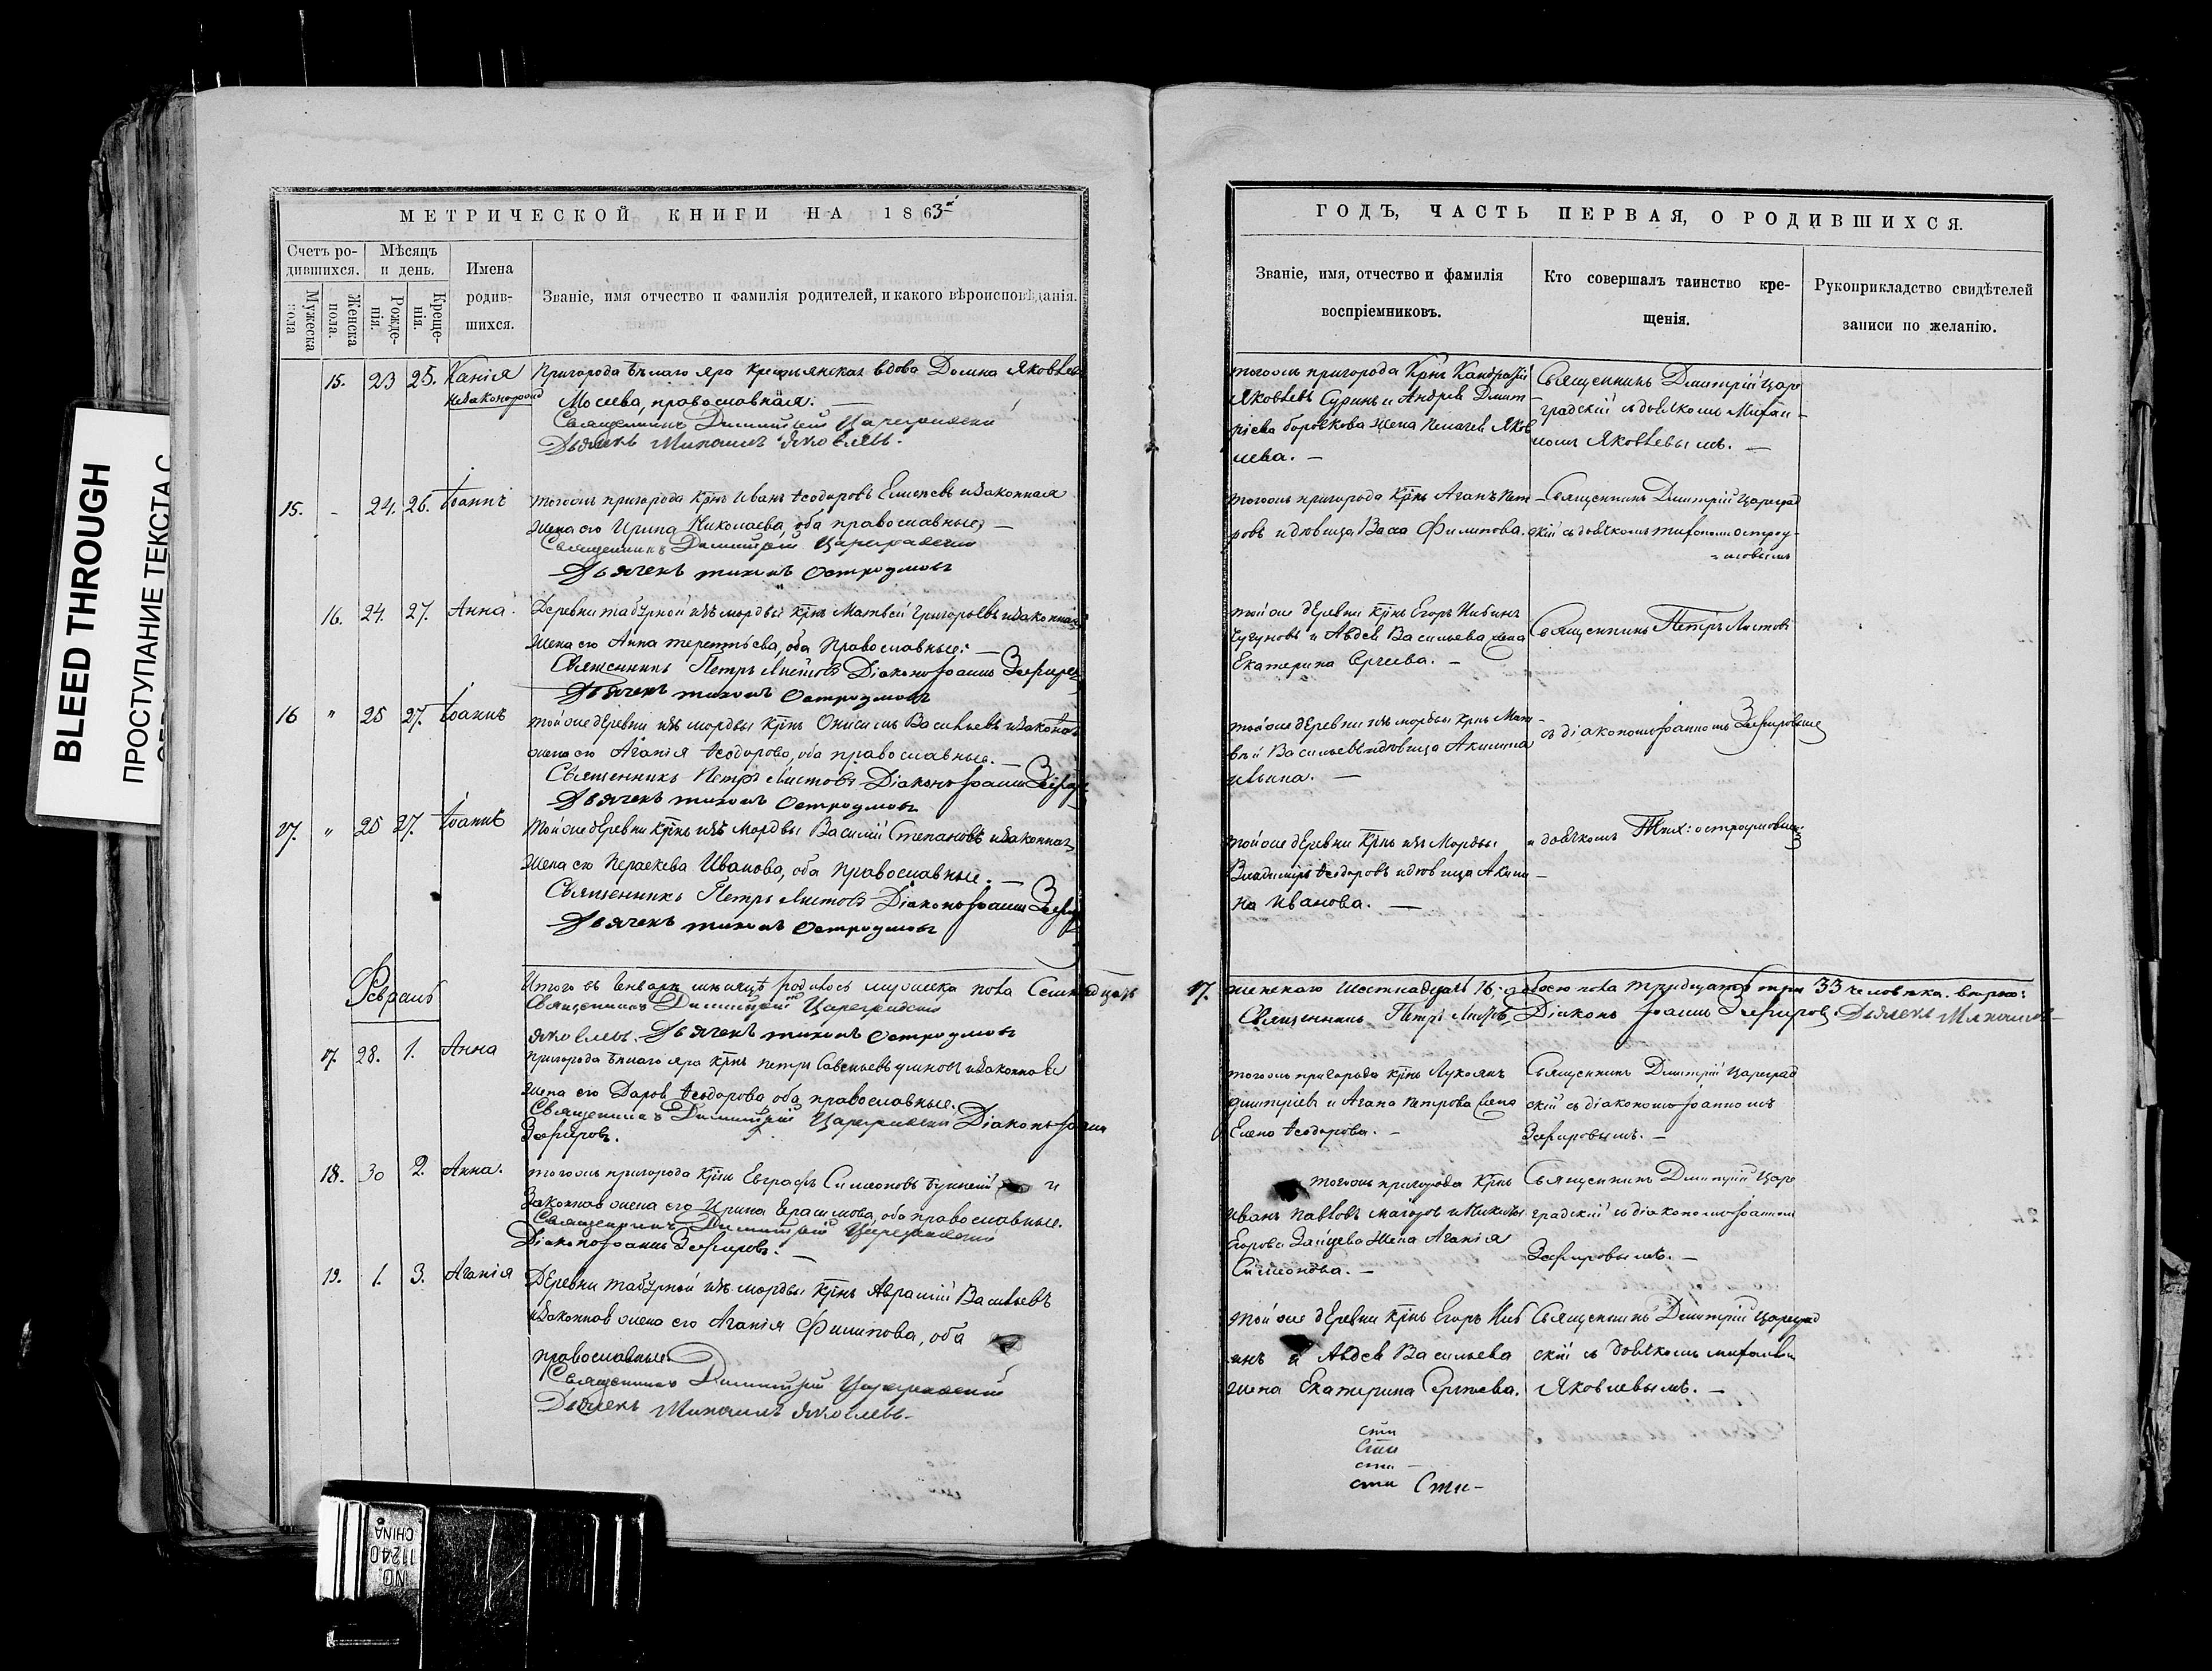 BLEED THROUGH
ПРОСТУПАНИЕ ТЕКСТА С
МЕТРИЧЕСКОЙ КНИГИ НА 1863й
Счетъ ро-
дившихся.
Мужеска
пола
Женска
пола.
Мѣсяцъ
и день.
Рожде-
нія.
Креще-
нія.
Имена
родив-
шихся.
Званіе, имя отчество и фамилія родителей, и какого вѣроисповѣданія.
15. 23 25. Пригорода Бѣлаго яра крестьянская вдова Домна Яковлева
православная. —
Священникъ Димитрій Цареградскій
Дьячекъ Михаилъ Яковлевъ.
15. - 24. 26. Іоаннъ тогожъ пригорода Крн҃ъ Иванъ Ѳеодоровъ и законная
жена его Ирина Николаева, оба православные, —
Священникъ Димитрій Цареградскій
Дьячекъ Тихонъ Остроумовъ
16. 24. 27. Анна. Деревни Табурной изъ мордвы Крн҃ъ Матвей Григорьевъ и законная
жена его Анна Терентьева, оба Православные. —
Священникъ Петръ Листовъ Діаконъ Іоаннъ
Дьячекъ Тихонъ Остроумовъ
16 " 25 27. Іоаннъ тойже деревни изъ мордвы Крн҃ъ Онисимъ Васильевъ и законая
жена его Агапія Ѳеодорова, оба православные. —
Священникъ Петръ Листовъ Діаконъ Іоаннъ
Дьячекъ Тихонъ Остроумовъ
17. " 25 27. Іоаннъ тойже деревни Крн҃ъ изъ Мордвы Василій Степановъ и законная
жена его Параскева Иванова, оба Православные. —
Священникъ Петръ Листовъ Діаконъ Іоаннъ
Дьячекъ Тихонъ Остроумовъ
Февраль
Итого въ Генварѣ мѣсяцѣ родилось мужеска пола Семнадцать
Священникъ Димитрій Цареградскій
Яковлевъ. Дьячекъ Тихонъ Остроумовъ
17. 28. 1. Анна Пригорода Бѣлаго яра Крн҃ъ Петръ Савельевъ и законная
жена его Дарья Ѳеодорова оба православные.
Священникъ Димитрій Цареградскій Діаконъ Іоаннъ
Зефировъ.
18. 30 2. Анна. тогожъ пригорода Крн҃ъ Евграфъ Симеоновъ и
Законная жена его Ирина Герасимова, оба православные.
Священникъ Димитрій Цареградскій
Діаконъ Іоаннъ Зефировъ. —
19. 1. 3. Агапія Деревни Табурной изъ мордвы Крн҃ъ Аврамій Васильевъ
и законная жена его Агапія Филипова, оба
православные.
Священникъ Димитрій Цареградскій
Дьячекъ Михаилъ Яковлевъ.
ГОДЪ, ЧАСТЬ ПЕРВАЯ, О РОДИВШИХСЯ.
Званіе, имя, отчество и фамилія
воспріемниковъ.
Кто совершалъ таинство кре-
щенія.
Рукоприкладство свидѣтелей
записи по желанію.
тогожъ пригорода Крн҃ъ
Яковлевъ Суринъ и Андрея Дмит-
ріева жена Пелагея Яков
лева. —
Священникъ Дмитрій Царе
градскій съ дьячкомъ Михаи-
ломъ Яковлевымъ. —
тогожъ пригорода Крн҃ъ Агапъ Пет
ровъ и дѣвица Васса Филипова.
Священникъ Дмитрій Цареград
скій съ дьячкомъ Тихономъ Остроу-
=мовымъ
тойже деревни Крн҃ъ Егоръ
Чугуновъ и Авдея Васильева жена
Екатерина Сергеева. —
Священникъ Петръ Листовъ
тойже деревни изъ мордвы Крн҃ъ Мат-
вей Васильевъ и дѣвица Акилина
Ильина. —
съ діакономъ Іоанномъ Зефировымъ
тойже деревни Крн҃ъ изъ Мордвы
Владиміръ Ѳеодоровъ и дѣвица Акили-
на Иванова. —
и дьячкомъ Тих: Остроумовымъ
17. женскаго Шестнадцать 16, обоего пола тридцать три 33 человѣка.
Священникъ Петръ Листовъ, Діаконъ Іоаннъ Зефировъ. Дьячекъ Михаилъ
тогожъ пригорода Крн҃ъ Лукоянъ
Дмитріевъ и Агапа Петрова жена
Елена Ѳеодорова. —
Священникъ Дмитрій Цареград
скій съ діакономъ Іоанномъ
Зефировымъ. —
тогожъ пригорода Крн҃ъ
Иванъ Павловъ и Никиты
Егорова Зайцева Жена Агапія
Симеонова. —
Священникъ Дмитрій Царе
градскій съ діакономъ Іоанномъ
Зефировымъ. —
тойже деревни Крн҃ъ Егоръ
и Авдея Васильева
жена Екатерина Сергѣева.
Священникъ Дмитрій Цареград
скій съ дьячкомъ Михаиломъ
Яковлевымъ. —
сти
сти
сти
сти Сти-
NO. 11240
CHINA